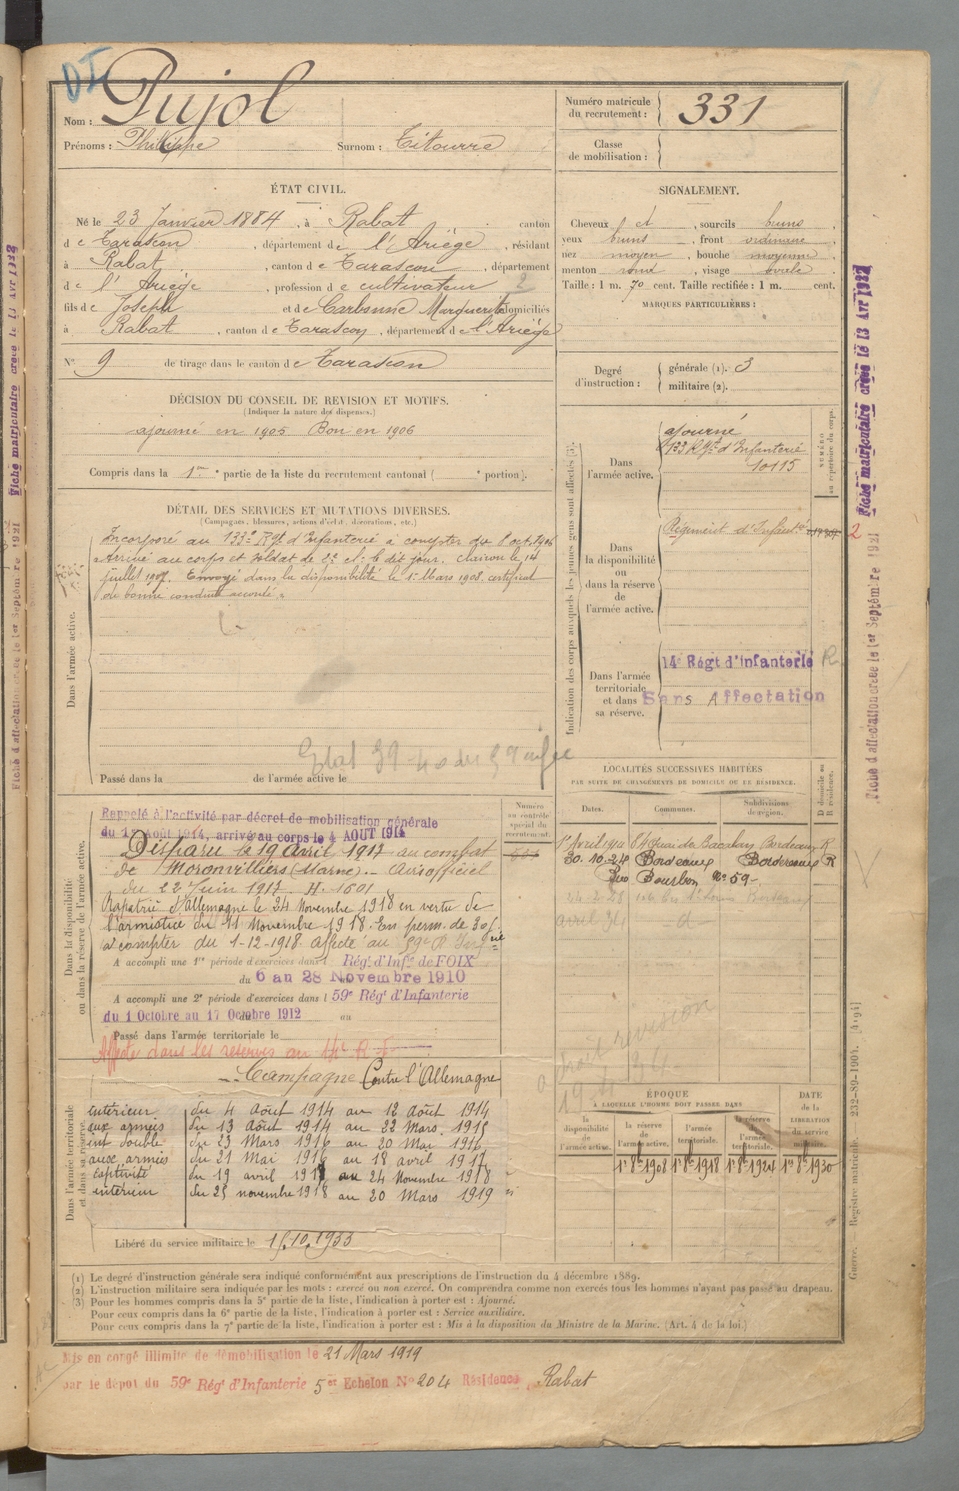 DI
Nom : Pujol
Prénoms : Philippe Surnom : Titourre
Numéro matricule du recrutement : 331
Classe de mobilisation :
ÉTAT CIVIL.
Né le 23 Janvier 1884, à Rabat canton
de Tarascon, département de l'Ariège, résidant
à Rabat, canton de Tarascon, département
de l'Ariège, profession de cultivateur 2
fils de Joseph et de Carbonne Marguerite domiciliés
à Rabat, canton de Tarascon, département de l'Ariège
N° 9 de tirage dans le canton de Tarascon
SIGNALEMENT.
Cheveux et, sourcils bruns
yeux bruns, front ordinaire
nez moyen, bouche moyenne
menton rond, visage ovale
Taille : 1 m. 70 cent. Taille rectifiée : 1 m. cent.
MARQUES PARTICULIÈRES :
Degré d'instruction : générale (1). 3
militaire (2).
DÉCISION DU CONSEIL DE REVISION ET MOTIFS.
(Indiquer la nature des dispenses.)
ajourné en 1905 Bon en 1906
Compris dans la 1re partie de la liste du recrutement cantonal ( e portion).
DÉTAIL DES SERVICES ET MUTATIONS DIVERSES.
(Campagnes, blessures, actions d'éclat, décorations, etc.)
Dans l'armée active.
Incorporé au 133e Rgt d'Infanterie à compter du 8 oct. 1906
Arrivé au corps et soldat de 2e cl. le dit jour. Clairon le 14
juillet 1907. Envoyé dans la disponibilité le 1er Mars 1908, certificat
de bonne conduite accordé.
Passé dans la de l'armée active le
Indication des corps auxquels les jeunes gens sont affectés (3).
NUMÉRO au répertoire du corps.
Dans l'armée active.
ajourné
133 Rgt d'Infanterie
10115
Dans la disponibilité ou dans la réserve de l'armée active.
Régiment d'Infanterie
Dans l'armée territoriale et dans sa réserve.
14e Régt d'Infanterie R
Sans Affectation
Fiche matriculaire créée le 13 Avr 1932
2
Fiche d'affectation créée le 1er Septembre 1921
LOCALITÉS SUCCESSIVES HABITÉES
PAR SUITE DE CHANGEMENTS DE DOMICILE OU DE RÉSIDENCE.
Dates. Communes. Subdivisions de région. D domicile ou R résidence.
Bordeaux R
30.10.24 Bordeaux Bordeaux R
Rue Bourbon No 59
Dans la disponibilité ou dans la réserve de l'armée active.
Numéro au contrôle spécial du recrutement.
Rappelé à l'activité par décret de mobilisation générale
du 1er Août 1914, arrivé au corps le 4 AOUT 1914
Disparu le 19 avril 1917 au combat
de Moronvilliers (Marne). Avis officiel
du 22 Juin 1917. H. 1501
Rapatrié d'Allemagne le 24 Novembre 1918 en vertu de
l'armistice du 11 Novembre 1918. En perm. de 30 j.
à compter du 1-12-1918 affecté au 59e R. Infrie
A accompli une 1re période d'exercices dans l Régt d'Infie de FOIX
du 6 au 28 Novembre 1910
A accompli une 2e période d'exercices dans l 59e Régt d'Infanterie
du 1 Octobre au 17 Octobre 1912 au
Passé dans l'armée territoriale le
Affecté dans les réserves au 14e R.I.
Campagne Contre l'Allemagne
Dans l'armée territoriale et dans sa réserve.
intérieur du 4 Août 1914 au 12 Août 1914
aux armées du 13 Août 1914 au 22 Mars 1915
int double du 23 Mars 1916 au 20 Mai 1916
aux armées du 21 Mai 1916 au 18 avril 1917
captivité du 19 avril 1917 au 24 Novembre 1918
intérieur du 25 novembre 1918 au 20 Mars 1919
Libéré du service militaire le 15.10.1933
ÉPOQUE
À LAQUELLE L'HOMME DOIT PASSER DANS
la disponibilité de l'armée active. la réserve de l'armée active. l'armée territoriale. la réserve de l'armée territoriale.
DATE de la LIBÉRATION du service militaire.
1er 8bre 1908 1er 8bre 1918 1er 8bre 1924 1er 8bre 1930
(1) Le degré d'instruction générale sera indiqué conformément aux prescriptions de l'instruction du 4 décembre 1889.
(2) L'instruction militaire sera indiquée par les mots : exercé ou non exercé. On comprendra comme non exercés tous les hommes n'ayant pas passé au drapeau.
(3) Pour les hommes compris dans la 5e partie de la liste, l'indication à porter est : Ajourné.
Pour ceux compris dans la 6e partie de la liste, l'indication à porter est : Service auxiliaire.
Pour ceux compris dans la 7e partie de la liste, l'indication à porter est : Mis à la disposition du Ministre de la Marine. (Art. 4 de la loi.)
Guerre. — Registre matricule. 232-89-1904. [4194]
Mis en congé illimité de démobilisation le 21 Mars 1919
par le dépôt du 59e Régt d'Infanterie 5e Echelon No 204 Résidence Rabat